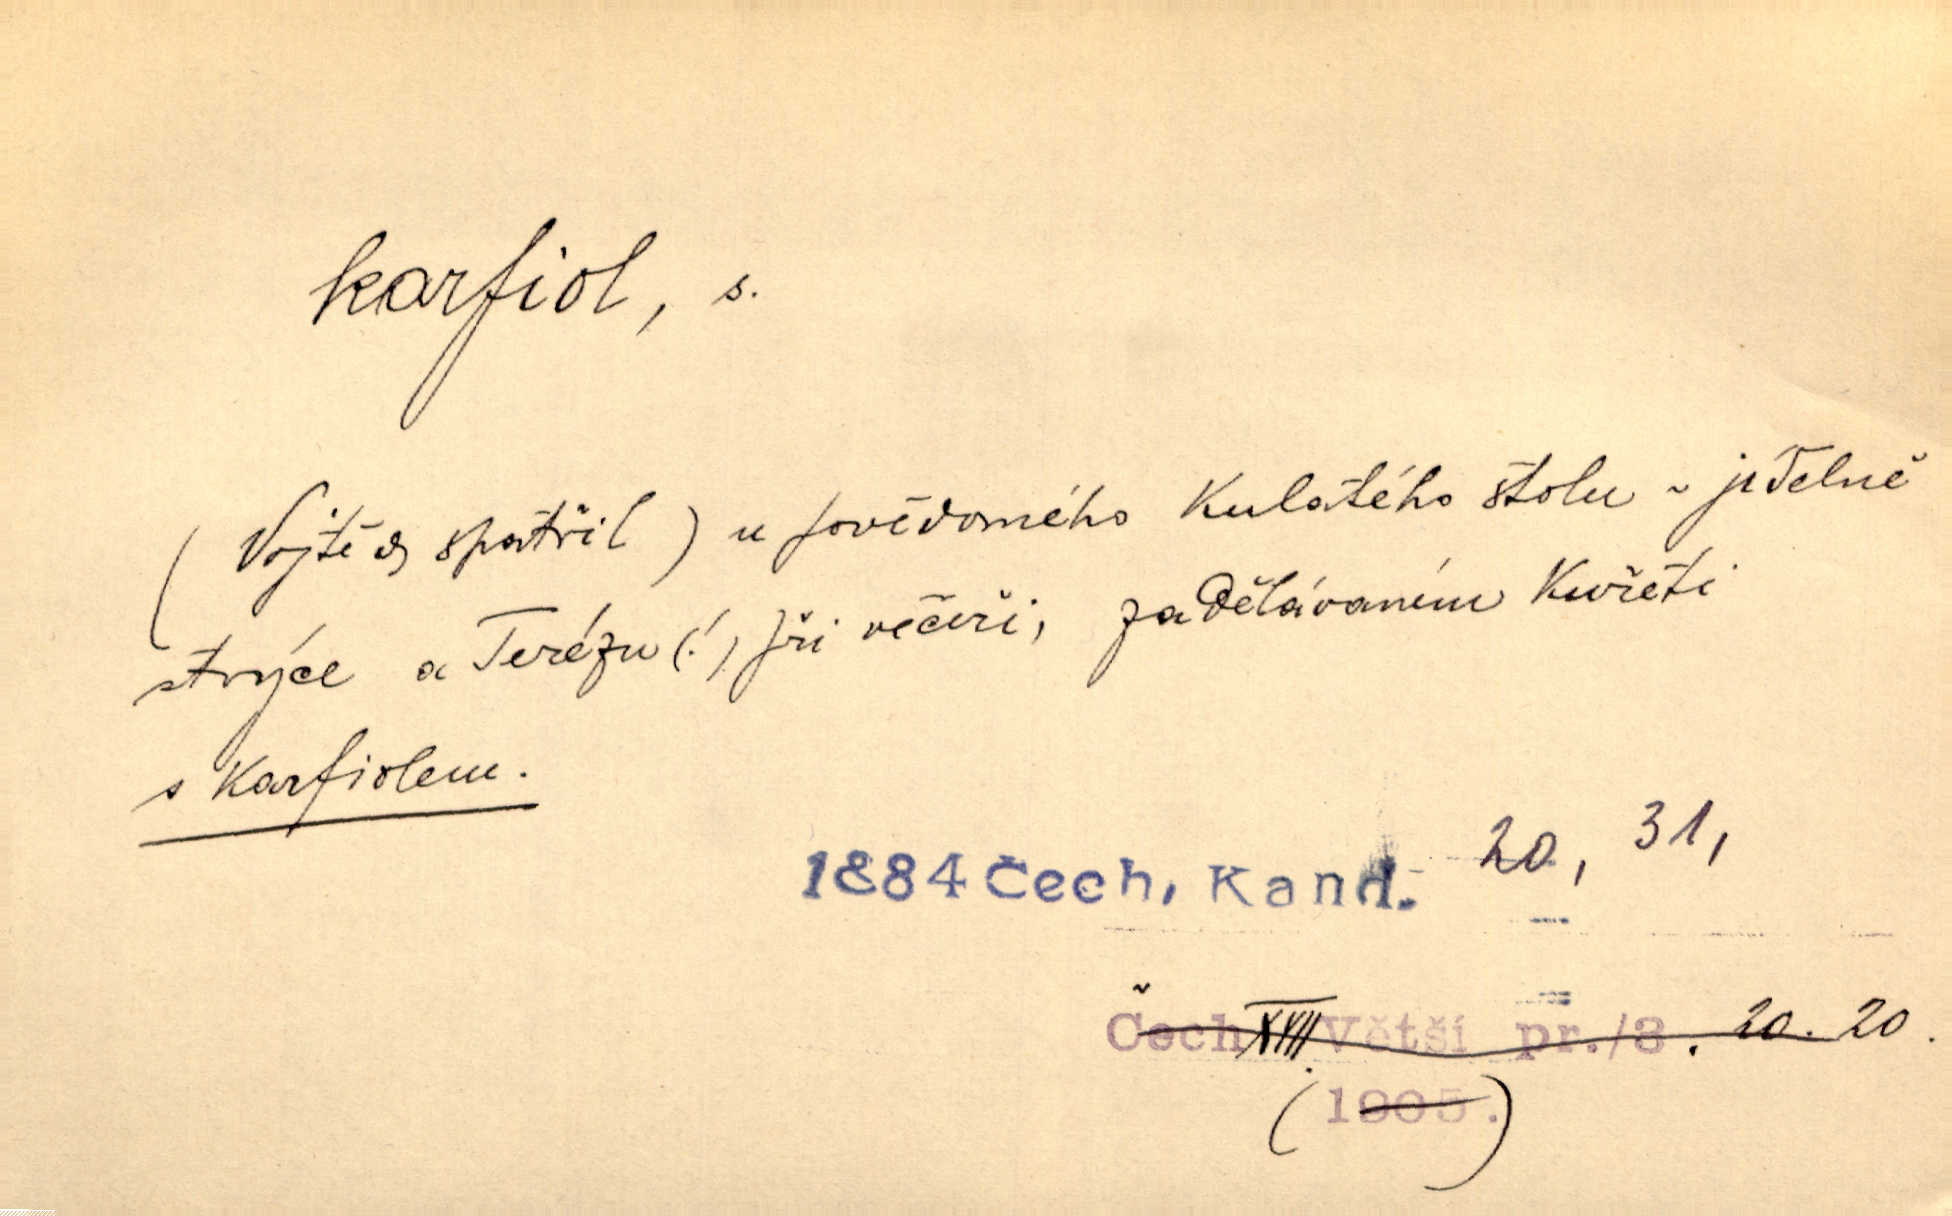 karfiol, s.
(Vojtěch spatřil) u povědomého kulatého stolu v jídelně
strýce a Terézu(!) při večeři, zadělávaném kuřeti
s karfiolem.
1884 Čech, Kand. 20, 31,
Čech XVIII Větší pr./3. 20. 20.
(1905.)